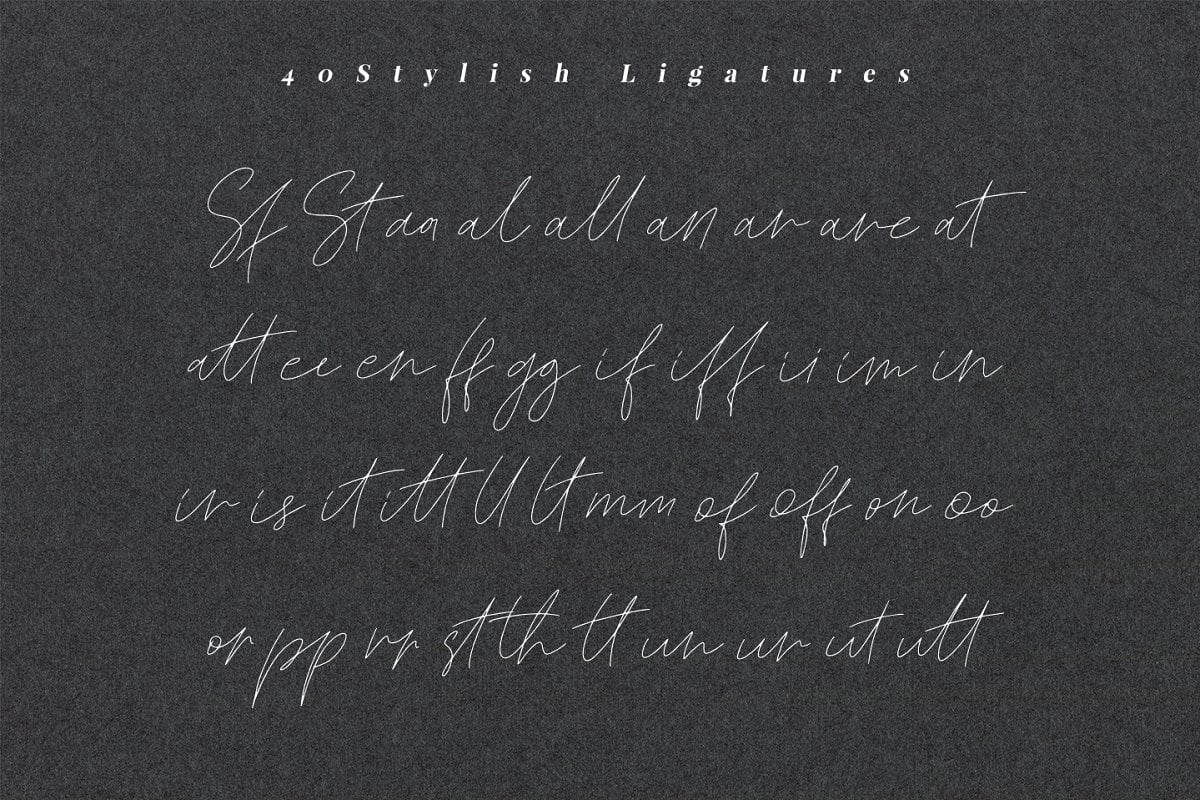 40Stylish Ligatures
Sf St aa al all an ar are at
att ee en ff gg if iff ii im in
ir is it itt ll lt mm of off on oo
or pp rr st th tt un ur ut utt